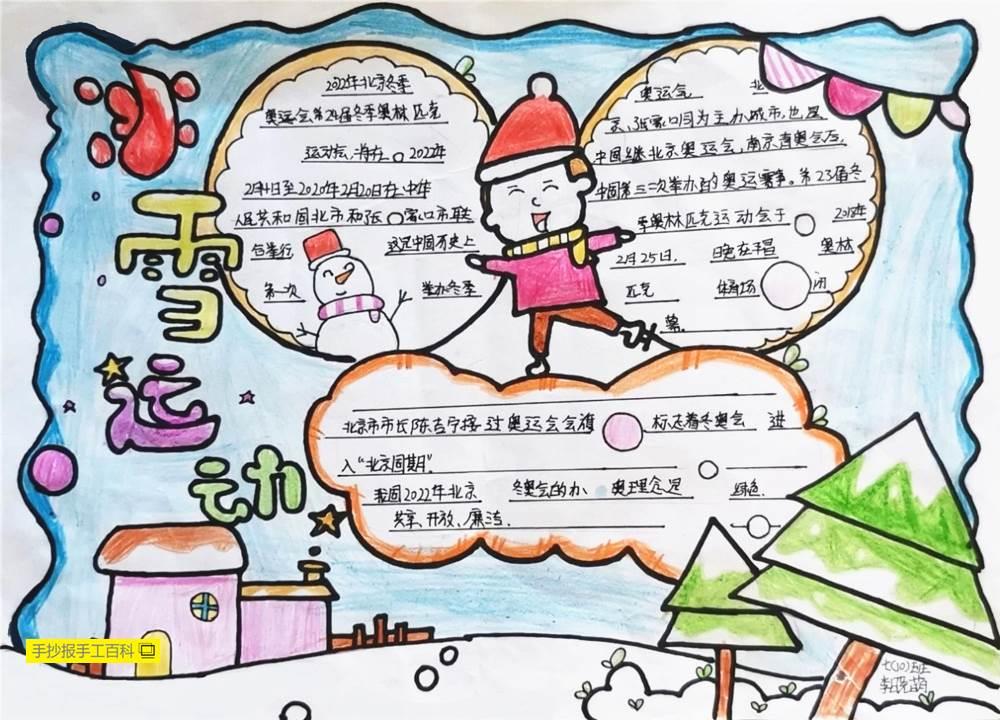 冰
雪
运
动
2022年北京冬季
奥运会第24届冬季奥林匹克
运动会,将在 2022年
2月4日至2020年2月20日在中华
人民共和国北市和张 家口市联
合举行 这是中国历史上
第一次 举办冬季
奥运会 北
京、张家口同为主办城市,也是
中国继北京奥运会,南京青奥会后,
中国第三次举办的奥运赛事。第23届冬
季奥林匹克运动会于 2018年
2月25日, 晚在平昌 奥林
匹克 体育场 闭
幕。
北京市市长陈吉宁接过奥运会会旗 标志着冬奥会 进
入“北京周期”.
我国2022年北京 冬奥会的办 奥理念是 绿色.
共享、开放、廉洁.
七(10)班
手抄报手工百科